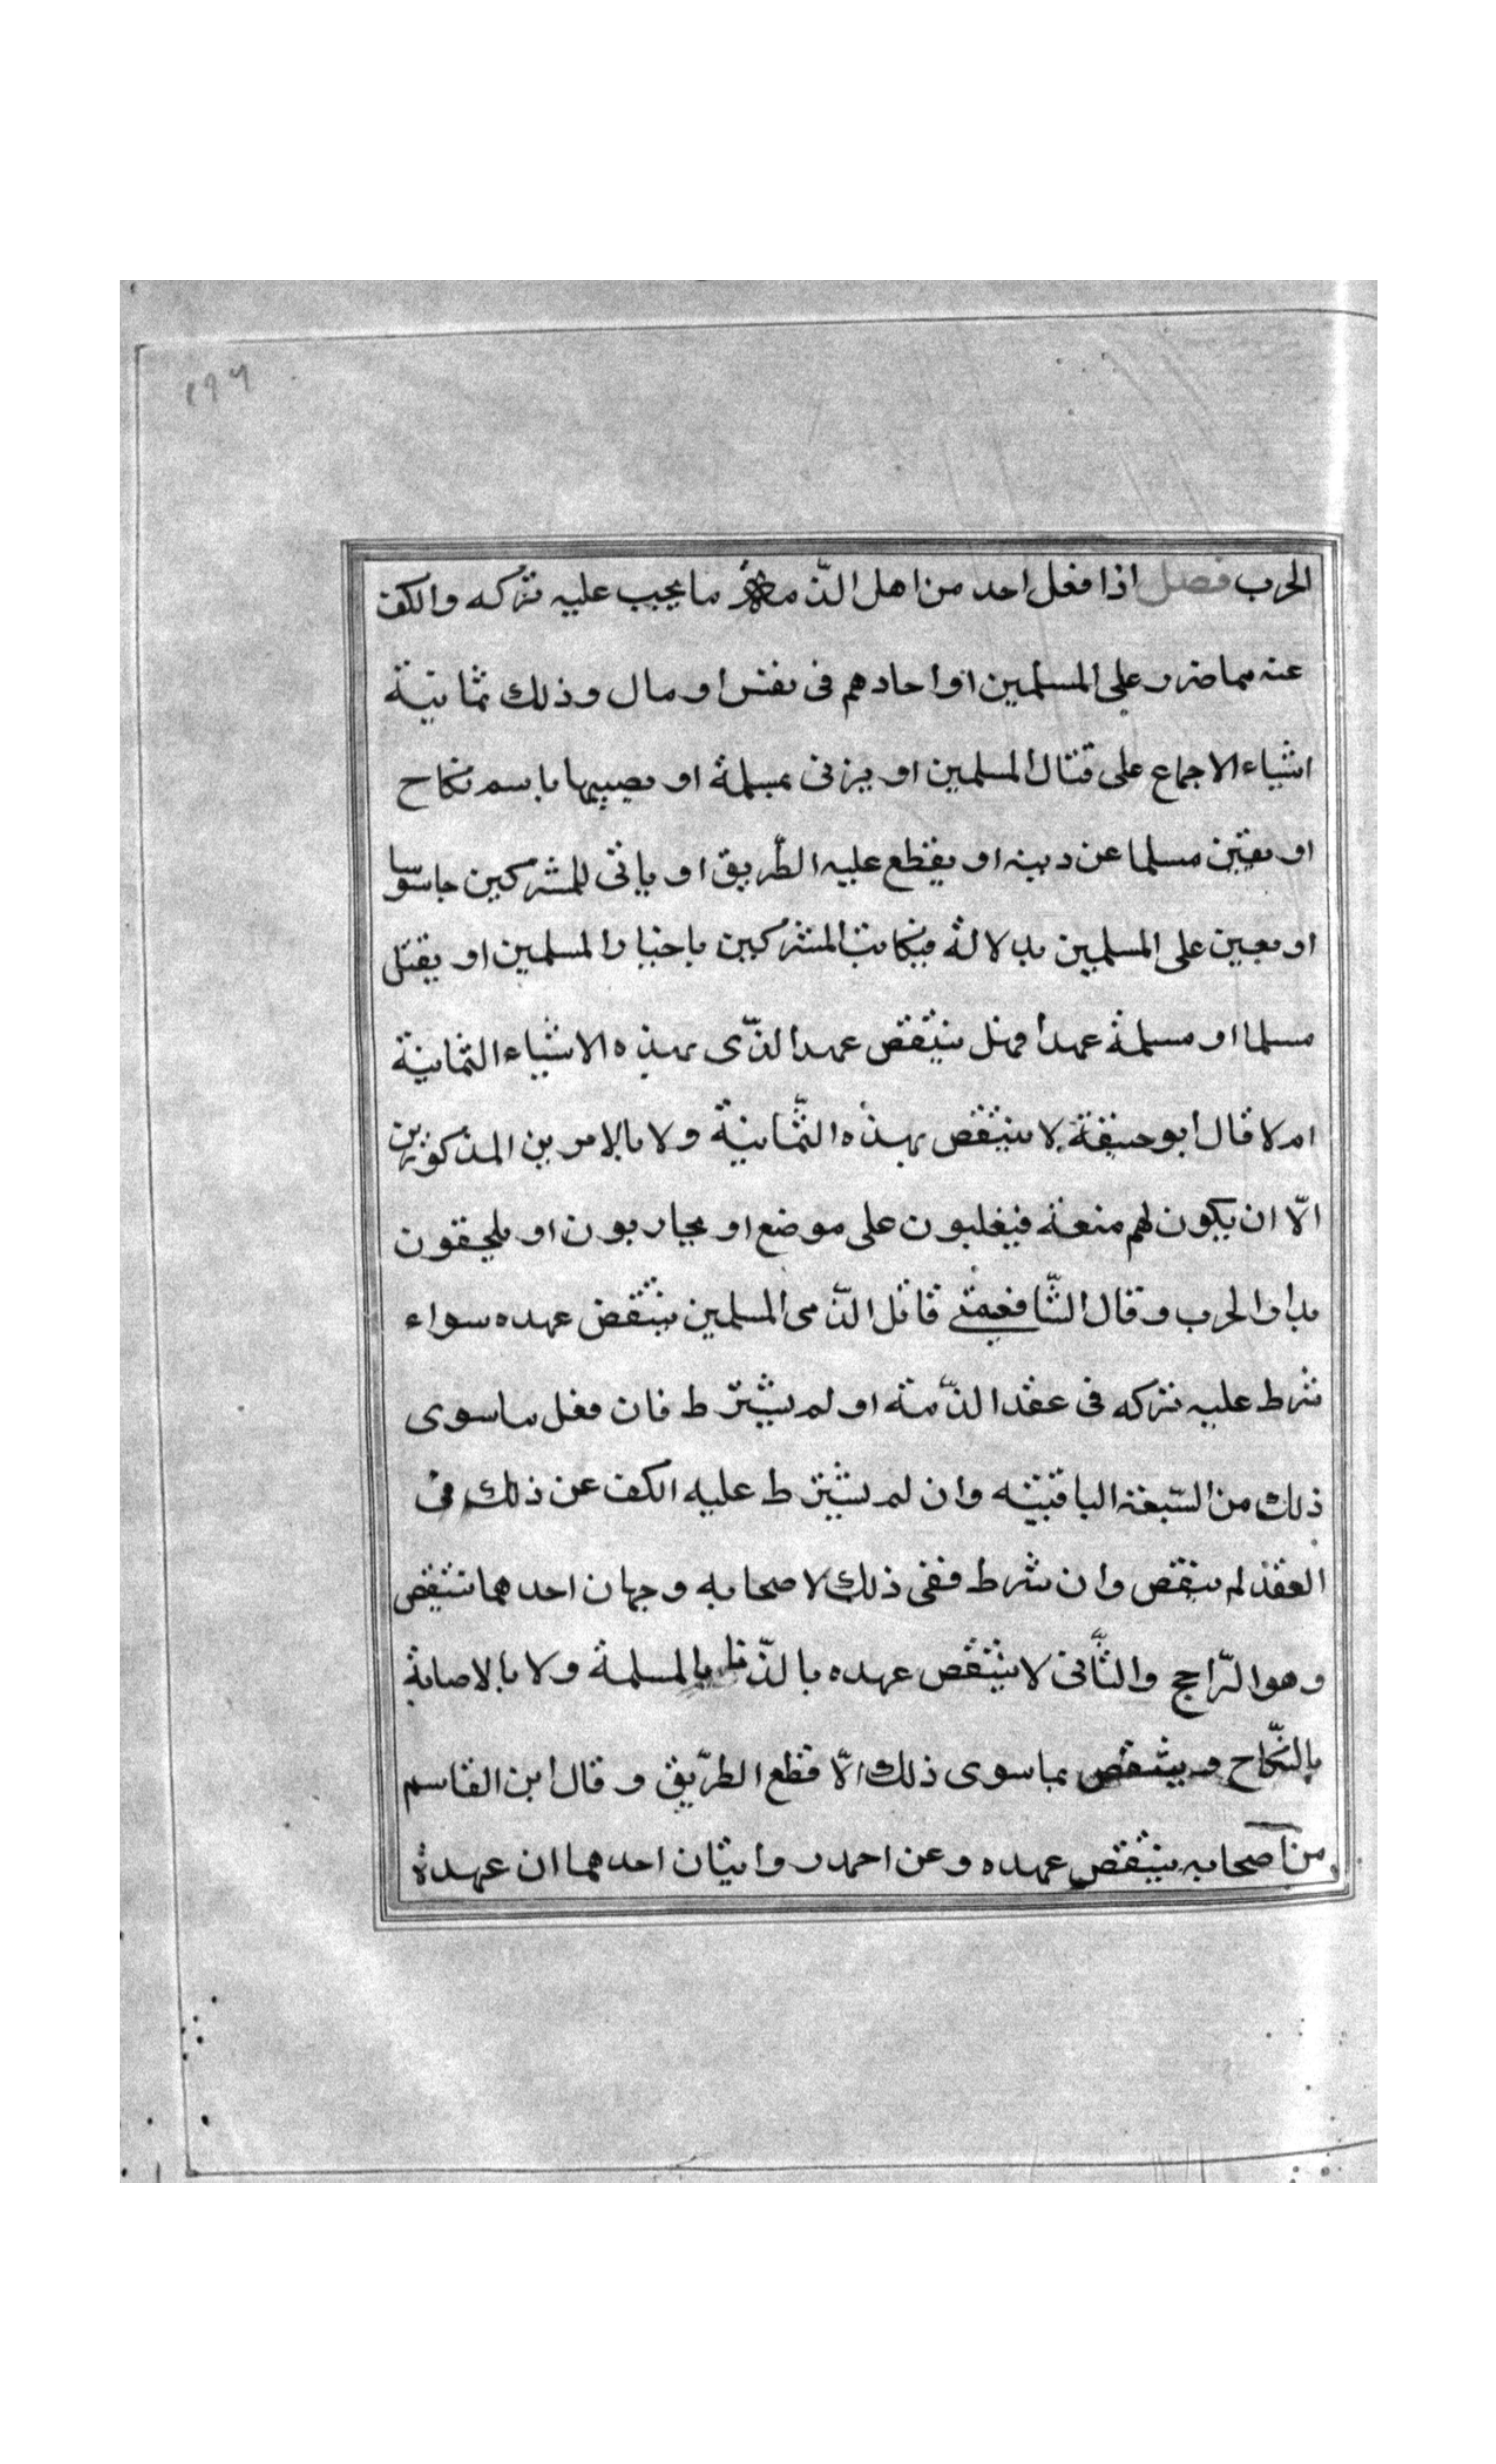 ١٩٦
الحرب فصل اذا فعل احد من اهل الذّمة ما يجب عليه تركه والكف
عنه مما ضرر على المسلمين او احادهم فى نفس او مال وذلك ثمانية
اشياء الاجماع على قتال المسلمين او يزنى بمسلمة او يصيبها باسم نكاح
او يفتن مسلما عن دينه او يقطع عليه الطّريق او ياتى للمشركين جاسوسا
او يعين على المسلمين بدلالة فيكاتب المشركين باخبار المسلمين او يقتل
مسلما او مسلمة عمدا فهل ينتقض عهد الذّمى بهذه الاشياء الثمانية
ام لا قال ابو حنيفة لا ينتقض بهذه الثّمانية ولا بالامرين المذكورين
الّا ان يكون لهم منعة فيغلبون على موضع او يحاربون او يلحقون
بدار الحرب وقال الشّافعى متى قاتل الذّمى المسلمين ينتقض عهده سواء
شرط عليه تركه فى عقد الذّمة او لم يشترط فان فعل ما سوى
ذلك من السّبعة الباقية وان لم يشترط عليه الكف عن ذلك فى
العقد لم ينقض وان شرط ففى ذلك لاصحابه وجهان احدهما تنتقض
وهو الرّاجح والثّانى لا ينتقض عهده بالزّنا بالمسلمة ولا بالاصابة
بالنّكاح وينتقض بما سوى ذلك الّا قطع الطّريق وقال ابن القاسم
من اصحابه ينتقض عهده وعن احمد روايتان احدهما ان عهده